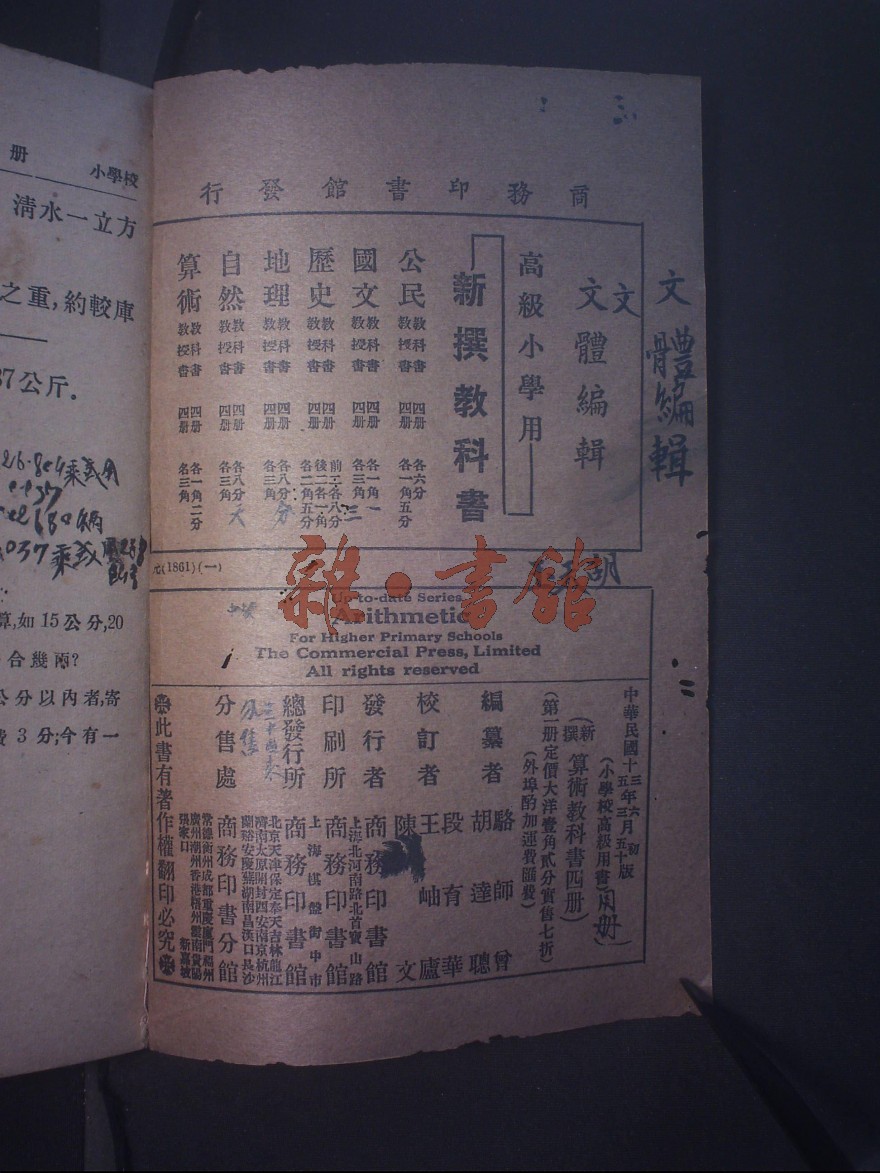 商務印書館發行
文體編輯
文
文體編輯
高級小學用
新撰教科書
公民 教科書 四册 各六分
教授書 四册 各一角五分
國文 教科書 四册 各一角
教授書 四册 各三角
歷史 教科書 四册 前二各八分 後二各一角
教授書 四册 各二角五分
地理 教科書 四册 各八分
教授書 四册 各三角
自然 教科書 四册 各八分
教授書 四册 各三角
算術 教科書 四册 各一角二分
教授書 四册 各三角
元(1861)(一)
雜·書館
Up-to-date Series
Arithmetic
For Higher Primary Schools
The Commercial Press, Limited
All rights reserved
中華民國十三年六月初版
十五年三月五十版
(小學校高級用書)
(新撰)算術教科書四册
(第一册定價大洋壹角貳分實售七折)
(外埠酌加運費匯費)
編纂者 駱師曾
胡達聰
校訂者 段育華
王岫廬
陳文
發行者 商務印書館
印刷所 上海北河南路北首寶山路
商務印書館
總發行所 上海棋盤街中市
商務印書館
分售處 北京天津保定奉天吉林龍江
濟南太原開封西安南京杭州
蘭谿安慶蕪湖南昌漢口長沙
商務印書分館
常德衡州成都重慶廈門福州
廣州潮州香港梧州雲南貴陽
張家口 新嘉坡
此書有著作權翻印必究
册 小學校
清水一立方
之重,約較庫
37公斤.
算,如15公分,20
合幾兩?
公分以內者,寄
費3分;今有一